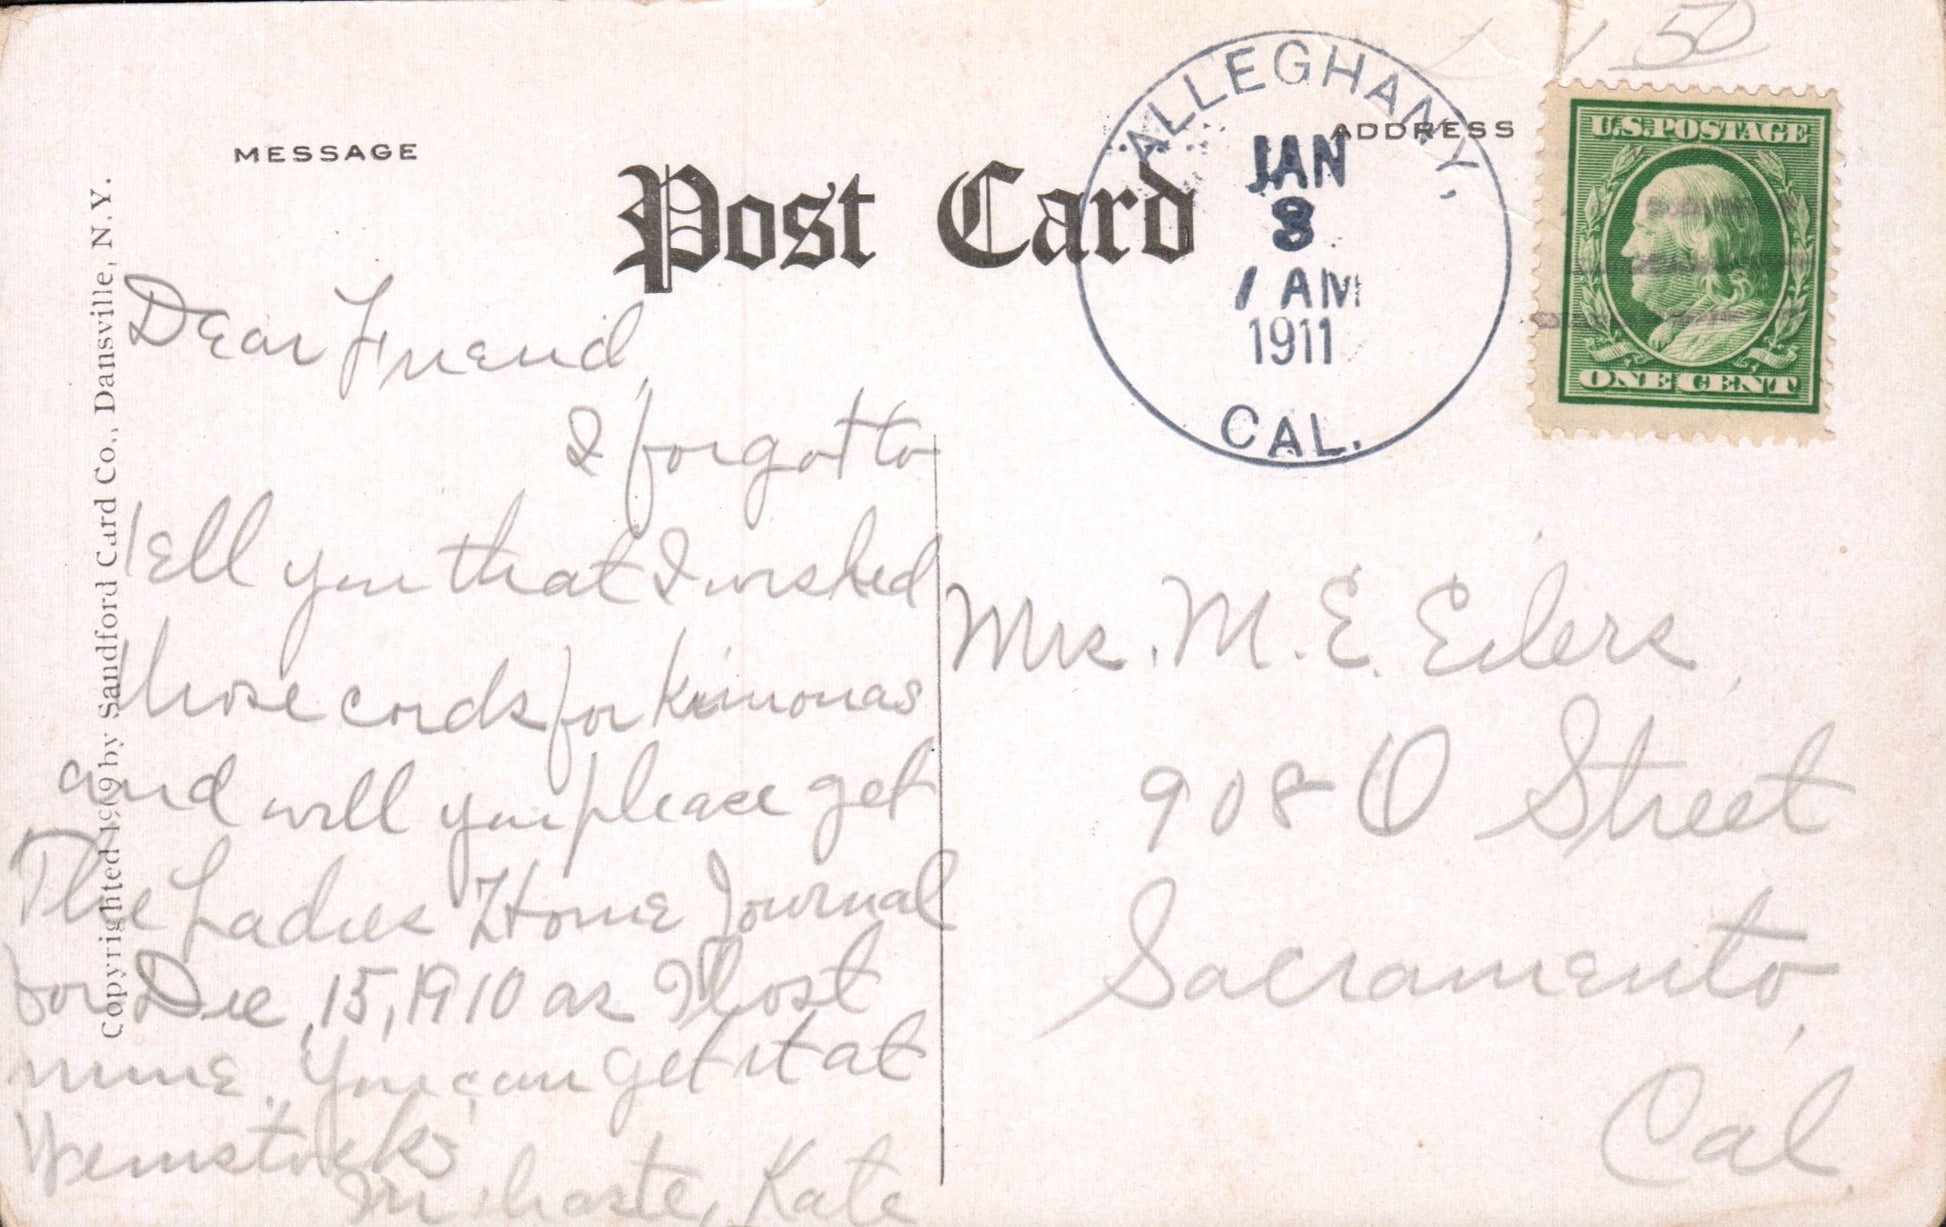 50
MESSAGE
Post Card
ADDRESS
ALLEGHANY,
JAN
3
1 AM
1911
CAL.
U.S. POSTAGE
ONE CENT
Copyrighted 1909 by Sandford Card Co., Dansville, N. Y.
Dear Friend,
I forgot to
tell you that I wished
those cords for Kimonas
and will you please get
The Ladies Home Journal
for Dec. 15, 1910 as I lost
mine. You can get it at
Weinstocks
In haste, Kate
Mrs. M. E. Eilers,
908 O Street
Sacramento,
Cal.